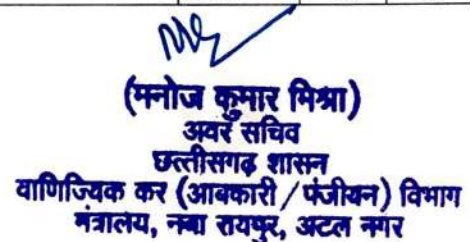 (मनोज कुमार मिश्रा)
अवर सचिव
छत्तीसगढ़ शासन
वाणिज्यिक कर (आबकारी / पंजीयन) विभाग
मंत्रालय, नवा रायपुर, अटल नगर